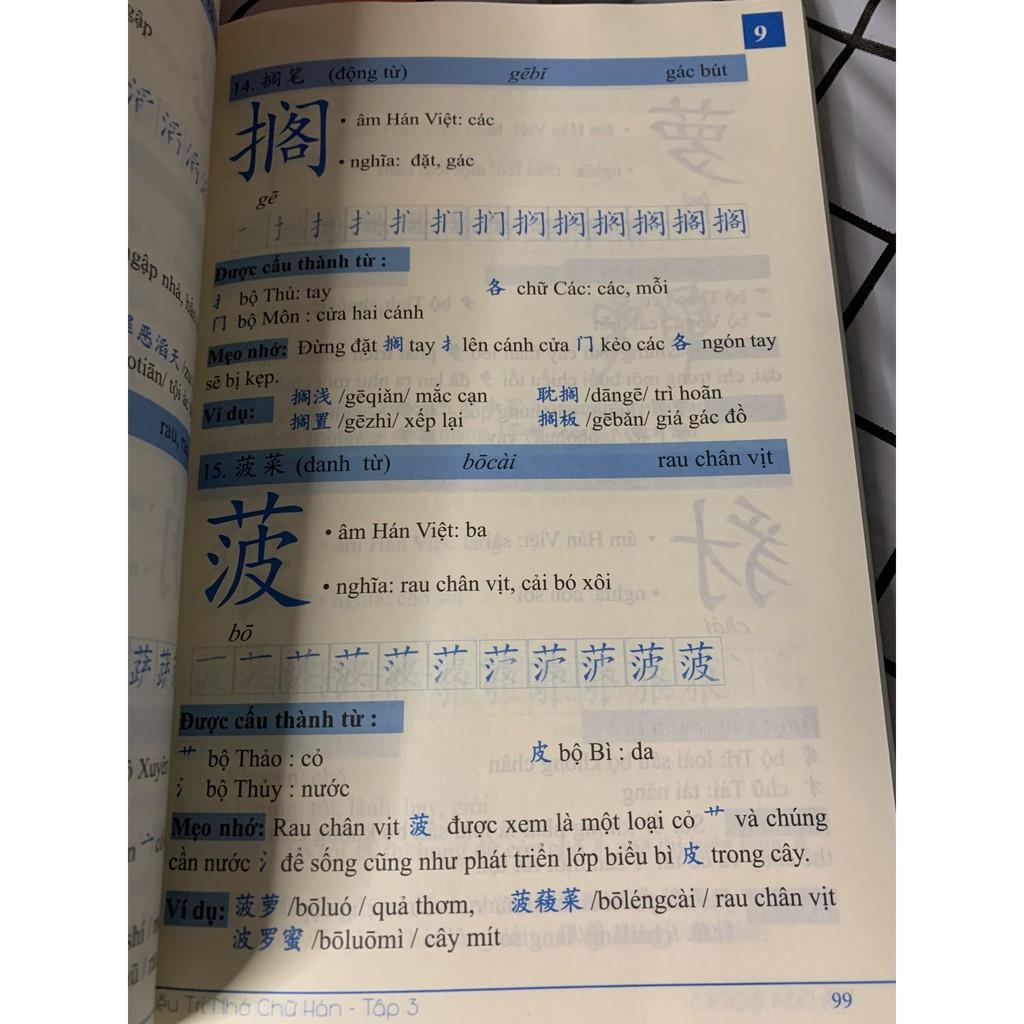 9
14. 搁笔 (động từ) gēbǐ gác bút
搁
• âm Hán Việt: các
• nghĩa: đặt, gác
gē
Được cấu thành từ :
扌 bộ Thủ: tay 各 chữ Các: các, mỗi
门 bộ Môn : cửa hai cánh
Mẹo nhớ: Đừng đặt 搁 tay 扌 lên cánh cửa 门 kẻo các 各 ngón tay
sẽ bị kẹp.
Ví dụ: 搁浅 /gēqiǎn/ mắc cạn 耽搁 /dāngē/ trì hoãn
搁置 /gēzhì/ xếp lại 搁板 /gēbǎn/ giá gác đồ
15. 菠菜 (danh từ) bōcài rau chân vịt
菠
• âm Hán Việt: ba
• nghĩa: rau chân vịt, cải bó xôi
bō
Được cấu thành từ :
艹 bộ Thảo : cỏ 皮 bộ Bì : da
氵 bộ Thủy : nước
Mẹo nhớ: Rau chân vịt 菠 được xem là một loại cỏ 艹 và chúng
cần nước 氵 để sống cũng như phát triển lớp biểu bì 皮 trong cây.
Ví dụ: 菠萝 /bōluó / quả thơm, 菠薐菜 /bōléngcài / rau chân vịt
波罗蜜 /bōluōmì / cây mít
Trí Nhớ Chữ Hán - Tập 3
99